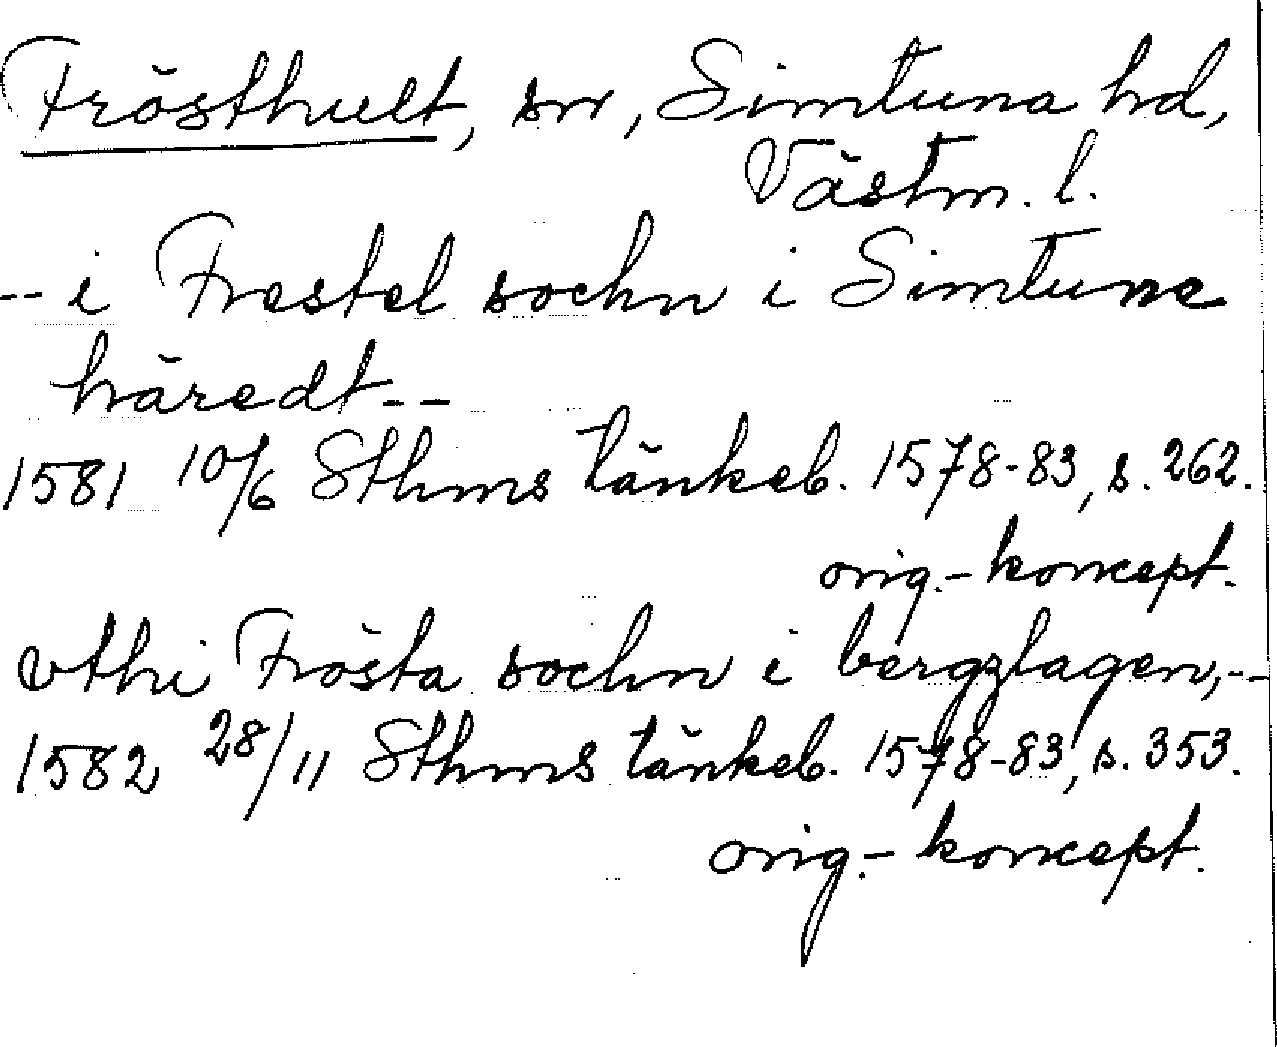 Frösthult, sn, Simtuna hd,
Västm. l.
-- i Frestel sochn i Simtune
häredt --
1581 10/6 Sthms tänkeb. 1578-83, s. 262.
orig.-koncept.
vthi Frösta sochn i bergzlagen, --
1582 28/11 Sthms tänkeb. 1578-83, s. 353.
orig.-koncept.